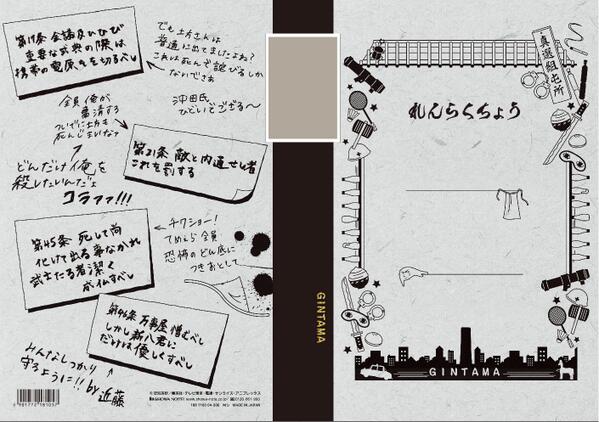 第17条 会議及びひび
重要な式典の際は
携帯の電源を切るべし
でも土方さんは
普通に出てましたよね?
これは死んで詫びるしか
ないでさぁ
沖田氏
ひどいでござる~
全員俺が
粛清する
ついでに土方も
死んじまいなァ
第21条 敵と内通せし者
これを罰する
どんだけ俺を
殺したいんだよ
コラァァ!!!
第45条 死して尚
化けて出る事なかれ
武士たる者潔く
成仏すべし
チクショー!
てめェら全員
恐怖のどん底に
つきおとして
第46条 万事屋憎むべし
しかし新八君に
だけは優しくすべし
みんなしっかり
守るように!! by 近藤
GINTAMA
真選組屯所
れんらくちょう
GINTAMA